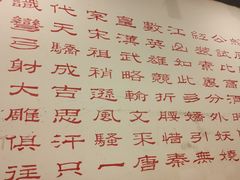 公試比高須晴日看
紅裝素裹分外妖嬈
江山如此多嬌引無
數英雄競折腰惜秦
皇漢武略輸文采唐
宗宋祖稍遜風騷一
代天驕成吉思汗只
識彎弓射大雕俱往